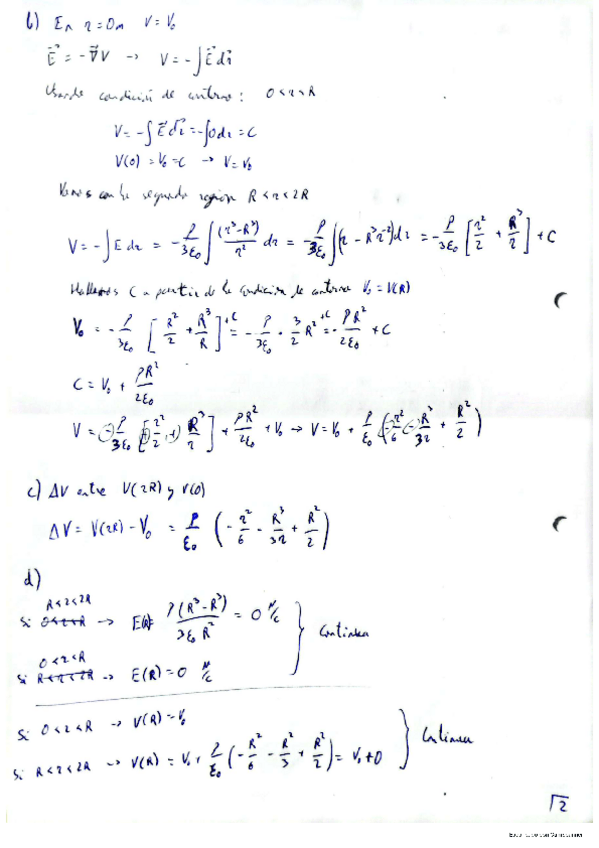 b) En r=0m V=V₀
E⃗ = -∇⃗V → V = -∫E⃗dr⃗
Usando condición de contorno: 0<r<R
V = -∫E⃗dr⃗ = -∫0dr = C
V(0) = V₀ = C → V = V₀
Vamos con la segunda región R<r<2R
V = -∫E dr = -ρ/3ε₀ ∫(r³-R³)/r² dr = -ρ/3ε₀ ∫(r - R³r⁻²)dr = -ρ/3ε₀ [r²/2 + R³/r] + C
Hallamos C a partir de la condición de contorno V₀ = V(R)
V₀ = -ρ/3ε₀ [R²/2 + R³/R] +C = -ρ/3ε₀ · 3/2 R² +C = -ρR²/2ε₀ + C
C = V₀ + ρR²/2ε₀
V = -ρ/3ε₀ [r²/2 + R³/r] + ρR²/2ε₀ + V₀ → V = V₀ + ρ/ε₀ (-r²/6 - R³/3r + R²/2)
c) ΔV entre V(2R) y V(0)
ΔV = V(2R) - V₀ = ρ/ε₀ (-r²/6 - R³/3r + R²/2)
d)
R<r<2R
Si 0<r<R → E(R) = ρ(R³-R³)/3ε₀R² = 0 N/C
Continua
0<r<R
Si R<r<2R → E(R) = 0 N/C
Si 0<r<R → V(R) = V₀
Continua
Si R<r<2R → V(R) = V₀ + ρ/ε₀ (-R²/6 - R²/3 + R²/2) = V₀ + 0
√2